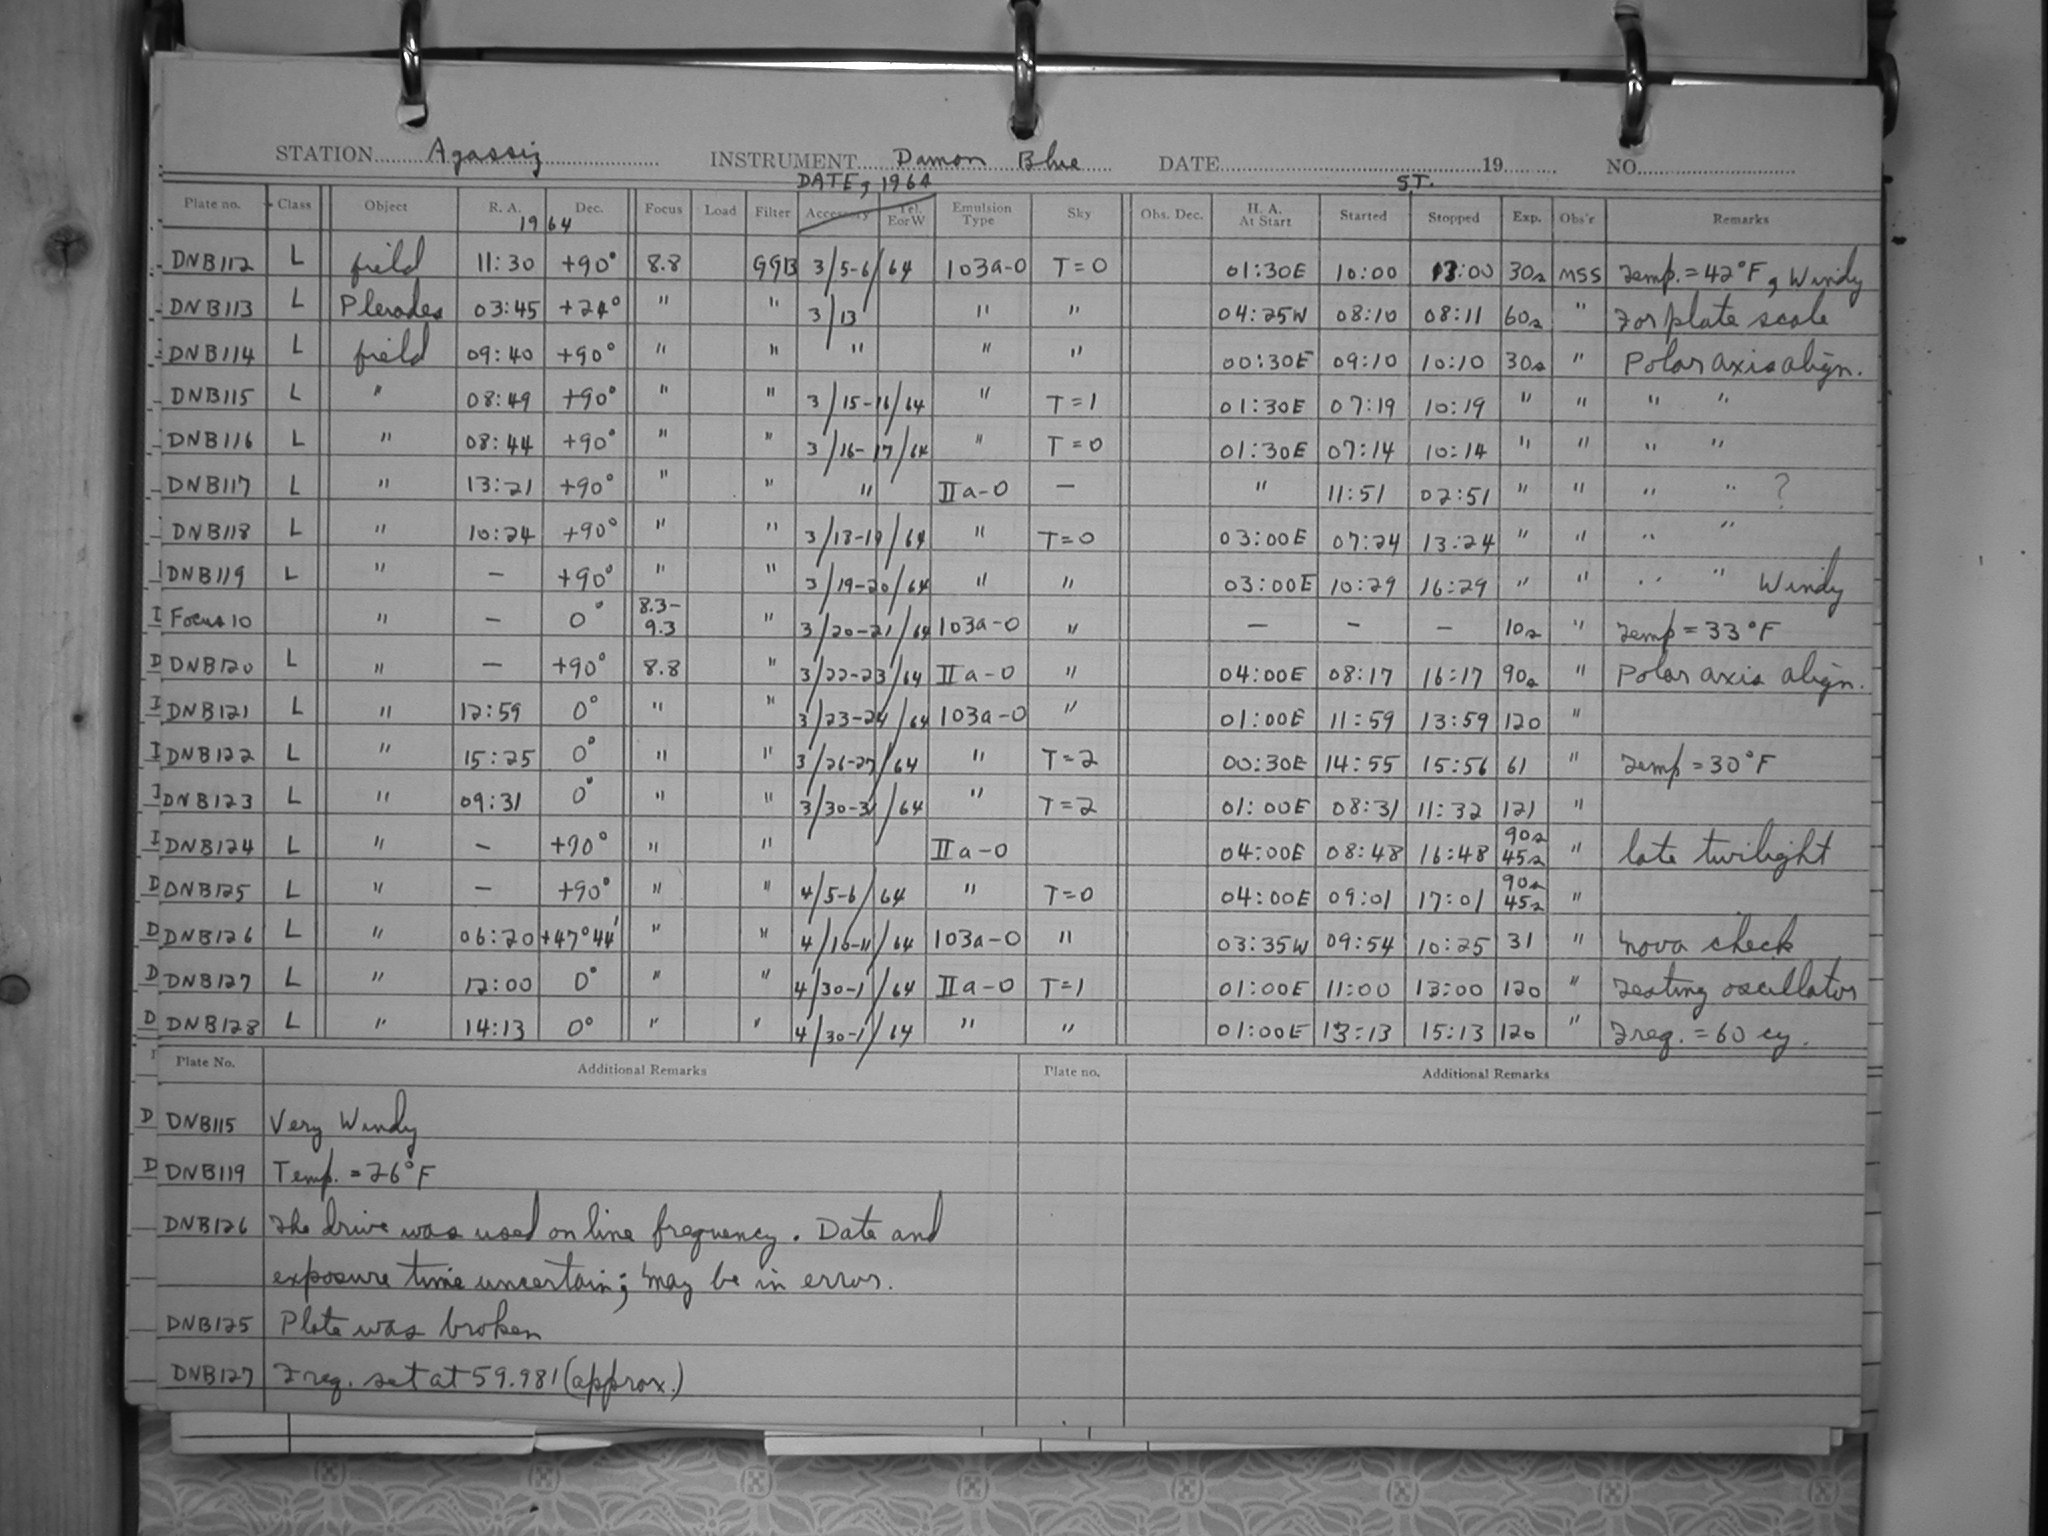 STATION Agassiz INSTRUMENT Damon Blue DATE 19 NO.
DATE, 1964 S.T.
Plate no. Class Object R. A. Dec. Focus Load Filter Accessory Tel. E or W Emulsion Type Sky Obs. Dec. H. A. At Start Started Stopped Exp. Obs'r Remarks
1964
DNB112 L field 11:30 +90° 8.8 GG13 3/5-6/64 103a-O T=0 01:30E 10:00 13:00 30s MSS Temp. = 42°F, Windy
DNB113 L Pleiades 03:45 +24° " " 3/13 " " 04:25W 08:10 08:11 60s " For plate scale
DNB114 L field 09:40 +90° " " " " " 00:30E 09:10 10:10 30s " Polar axis align.
DNB115 L " 08:49 +90° " " 3/15-16/64 " T=1 01:30E 07:19 10:19 " " " "
DNB116 L " 08:44 +90° " " 3/16-17/64 " T=0 01:30E 07:14 10:14 " " " "
DNB117 L " 13:21 +90° " " " IIa-O — " 11:51 02:51 " " " " ?
DNB118 L " 10:24 +90° " " 3/18-19/64 " T=0 03:00E 07:24 13:24 " " " "
DNB119 L " — +90° " " 3/19-20/64 " " 03:00E 10:29 16:29 " " " " Windy
I Focus 10 " — 0° 8.3-9.3 " 3/20-21/64 103a-O " — — — 10s " Temp = 33°F
D DNB120 L " — +90° 8.8 " 3/22-23/64 IIa-O " 04:00E 08:17 16:17 90s " Polar axis align.
I DNB121 L " 12:59 0° " " 3/23-24/64 103a-O " 01:00E 11:59 13:59 120 "
I DNB122 L " 15:25 0° " " 3/26-27/64 " T=2 00:30E 14:55 15:56 61 " Temp = 30°F
I DNB123 L " 09:31 0° " " 3/30-31/64 " T=2 01:00E 08:31 11:32 121 "
I DNB124 L " — +90° " " IIa-O 04:00E 08:48 16:48 90s 45s " late twilight
D DNB125 L " — +90° " " 4/5-6/64 " T=0 04:00E 09:01 17:01 90s 45s "
D DNB126 L " 06:20 +47°44' " " 4/10-11/64 103a-O " 03:35W 09:54 10:25 31 " Nova check
D DNB127 L " 12:00 0° " " 4/30-1/64 IIa-O T=1 01:00E 11:00 13:00 120 " Testing oscillator
D DNB128 L " 14:13 0° " " 4/30-1/64 " " 01:00E 13:13 15:13 120 " Freq. = 60 cy.
Plate No. Additional Remarks Plate no. Additional Remarks
D DNB115 Very Windy
D DNB119 Temp. = 26°F
DNB126 The drive was used on line frequency. Date and
exposure time uncertain; may be in error.
DNB125 Plate was broken
DNB127 Freq. set at 59.981 (approx.)